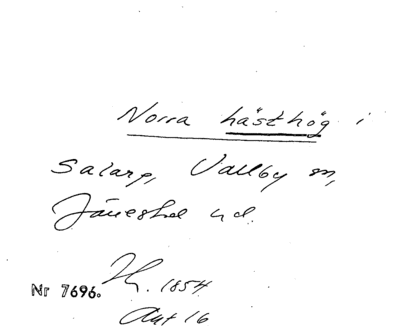 Norra hästhög i
Salarp, Vallby sn,
Järrestad hd.
Nr 7696. Th. 1854
Akt 16